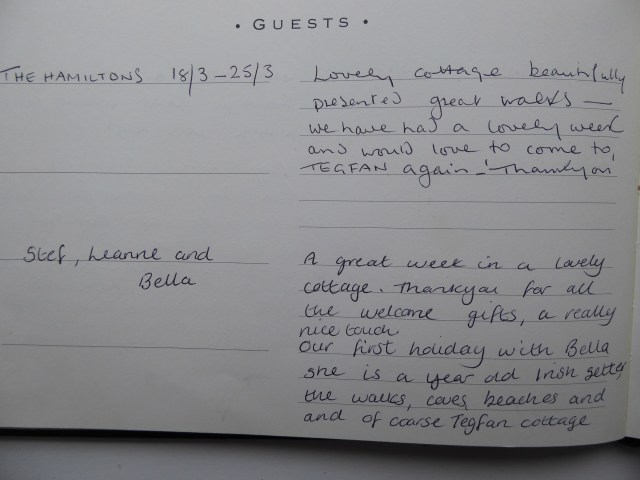 • GUESTS •
THE HAMILTONS 18/3 – 25/3
Lovely cottage beautifully
presented great walks —
we have had a lovely week
and would love to come to
TEGFAN again –! Thankyou
Stef, Leanne and
Bella
A great week in a lovely
cottage. Thankyou for all
the welcome gifts, a really
nice touch.
Our first holiday with Bella
she is a year old Irish setter
the walks, coves beaches and
and of coarse Tegfan cottage